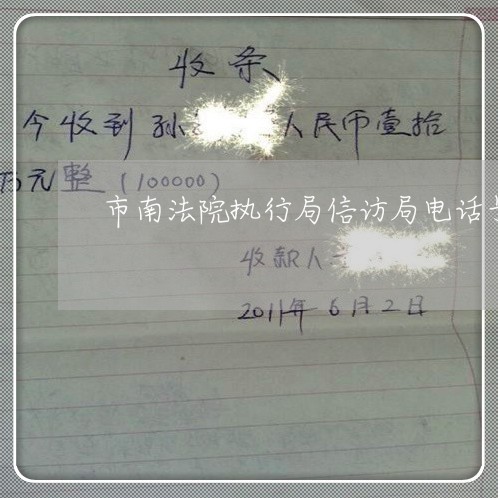 收条
今收到孙人民币壹拾
万元整(100000)
市南法院执行局信访局电话
收款人
2011年6月2日